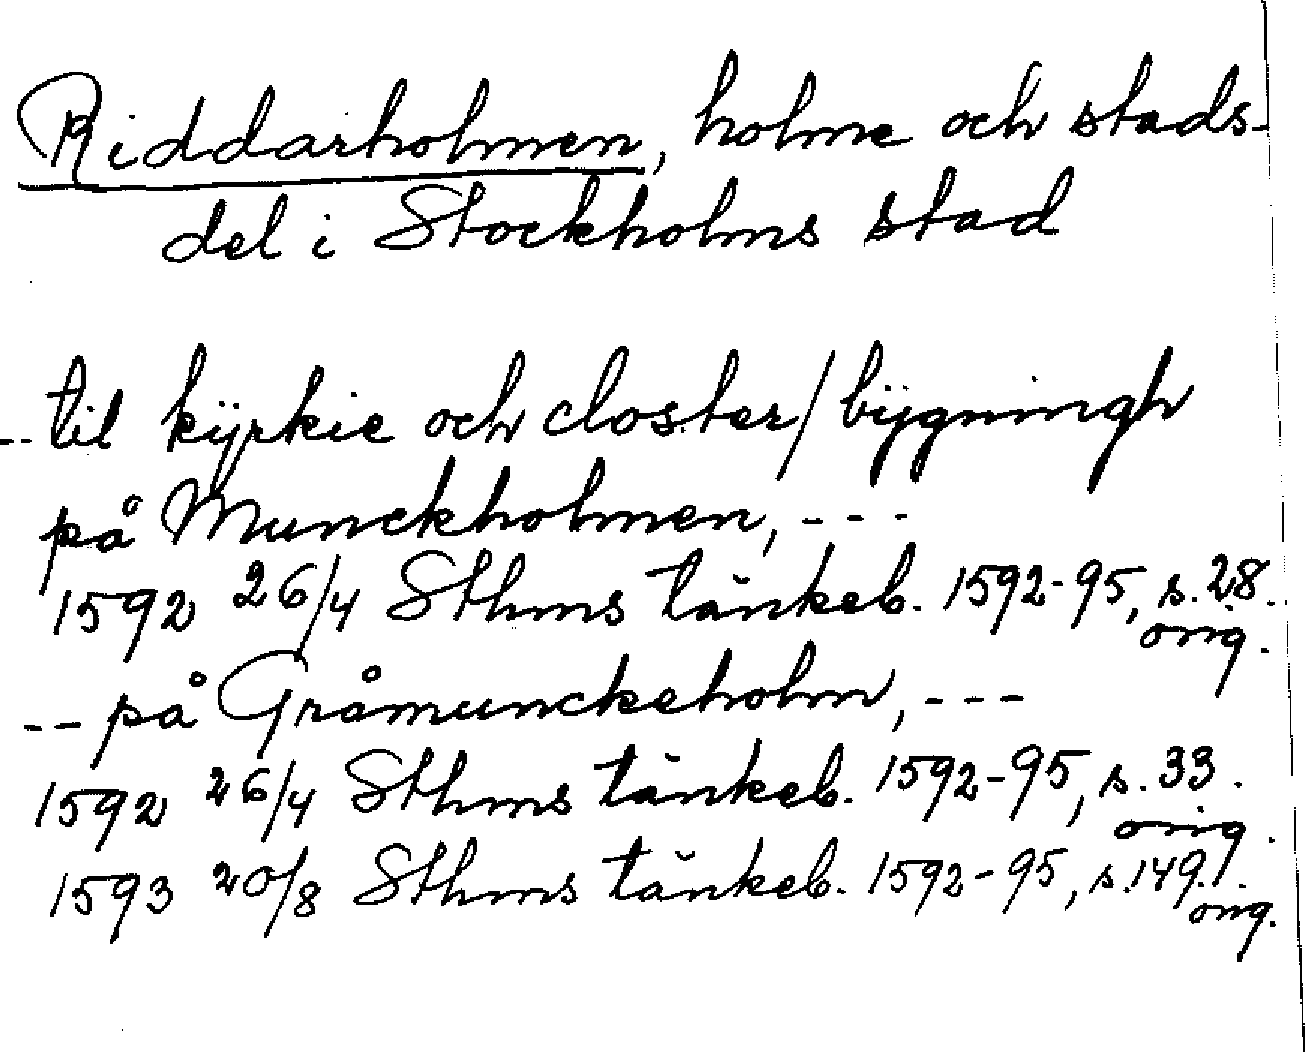 Riddarholmen, holme och stads-
del i Stockholms stad
-- til kÿrkie och closter/bÿgningh
på Munckholmen, ---
1592 26/4 Sthms tänkeb. 1592-95, s. 28.
orig.
-- på Gråmunckeholm, ---
1592 26/4 Sthms tänkeb. 1592-95, s. 33.
orig.
1593 20/8 Sthms tänkeb. 1592-95, s. 149.
orig.